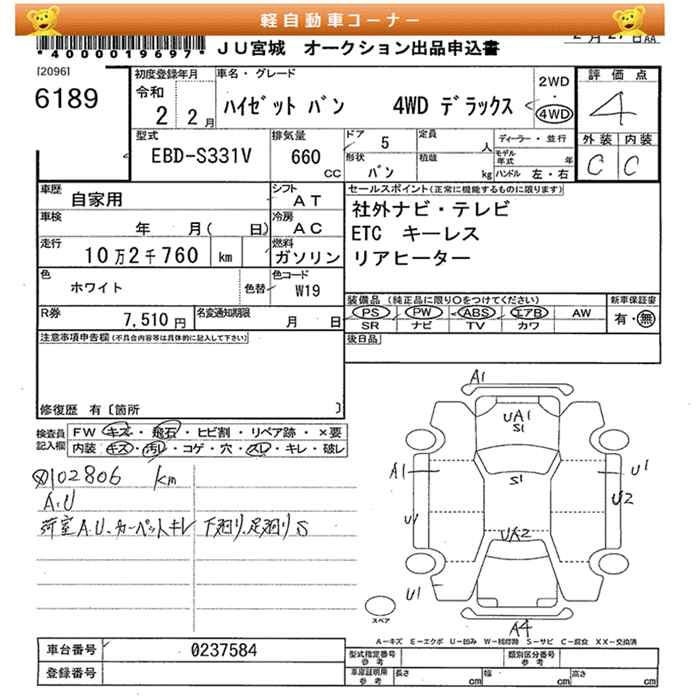 軽自動車コーナー
*4000019697*
JU宮城 オークション出品申込書
[2096]
6189
初度登録年月
令和
2 2月
車名・グレード
ハイゼット バン 4WD デラックス
2WD
・
4WD
評価点
4
外装 内装
C C
型式
EBD-S331V
排気量
660
CC
ドア
5
形状
バン
定員
人
積載
kg
ディーラー・並行
モデル年式 年
ハンドル 左・右
車歴
自家用
シフト
AT
車検
年 月( 日)
冷房
AC
走行
10万2千760 km
燃料
ガソリン
色
ホワイト
色替
色コード
W19
R券
7,510円
名変通知期限
月 日
セールスポイント(正常に機能するものに限ります)
社外ナビ・テレビ
ETC キーレス
リアヒーター
装備品(純正品に限り○をつけてください)
PS PW ABS エアB AW
SR ナビ TV カワ
新車保証書
有・無
後日品
注意事項申告欄(不具合内容等は具体的に記入して下さい)
修復歴 有〔箇所 〕
検査員
記入欄
FW キズ・飛石・ヒビ割・リペア跡・×要
内装 キズ・汚れ・コゲ・穴・スレ・キレ・破レ
102806 km
A.U
荷室A.U.カーペットキレ 下廻り、足廻りS
A1
UA1
S1
A1
S1
U1
U2
U1
UA2
U1
A4
スペア
A-キズ E-エクボ U-凹み W-補修跡 S-サビ C-腐食 XX-交換済
車台番号
0237584
登録番号
型式指定番号
参考
類別区分番号
参考
車庫証明用
参考
長さ cm
幅 cm
高さ cm